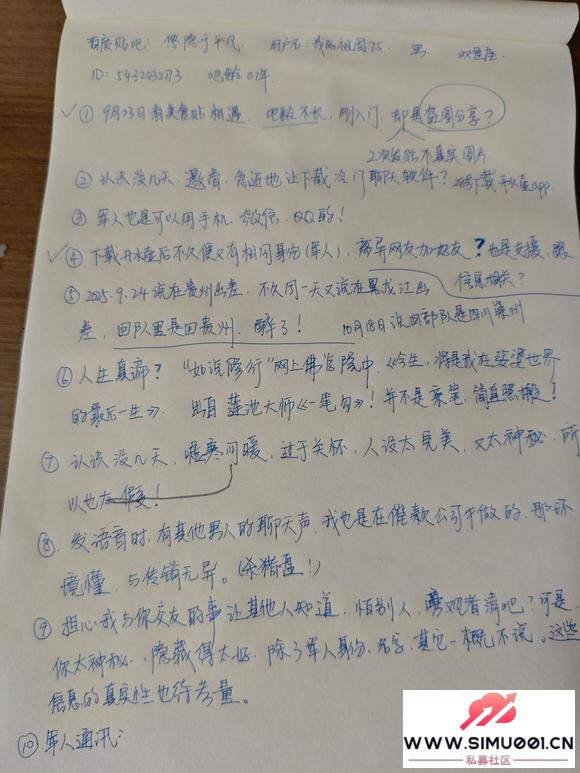 百度贴吧：傺隐于平凡． 用户名：我的祖国75． 男 双鱼座．
ID：5432032773 吧龄0.1年．
✓① 9月23日看美食贴相遇．吧龄不长，刚入门，却是蓝图分享？
2次发贴不真实图片
② 认识没几天．邀请．急迫地让下载冷门聊天软件？ 28号下载开水壶app．
③ 军人也是可以用手机．微信．QQ的！
✓④ 下载开水壶后不久便又有相同身份（军人），离异网友加好友？也是支援．跟
信息相关？
⑤ 2025.9.24说在贵州出差．不久同一天又说在黑龙江出
差，回队里是回贵州．醉了！ 10月18日说回部队是四川崇州
⑥ 人生真谛？ “如说修行”网上佛学院中．《今生，将是我在娑婆世界
的最后一生》． 出自莲池大师《一笔勾》！并不是亲笔，简直照搬！
⑦ 认识没几天，嘘寒问暖，过于关怀，人设太完美，又太神秘．所
以也太假！
⑧．发语音时，有其他男人的聊天声．我也是在催款公司干做的．那环
境懂，与传销无异。（杀猪盘！）
⑨ 担心我与你交友的事让其他人知道，怕别人，旁观者清吧？可是．
你太神秘．隐藏得太好．除了军人身份、名字，其它一概不说。这些
信息的真实性也待考量。
⑩ 军人通讯：
WWW.SIMU001.CN
私募社区